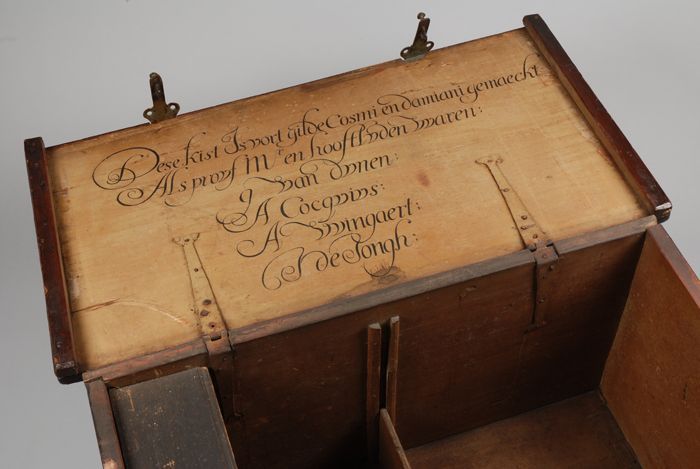 Dese kist Is voort gilde Cosmi en damiani gemaeckt
Als proof Mrs en hooftluden waren:
J van dunen:
A Cocquius:
A Wingaert:
J de Jongh: